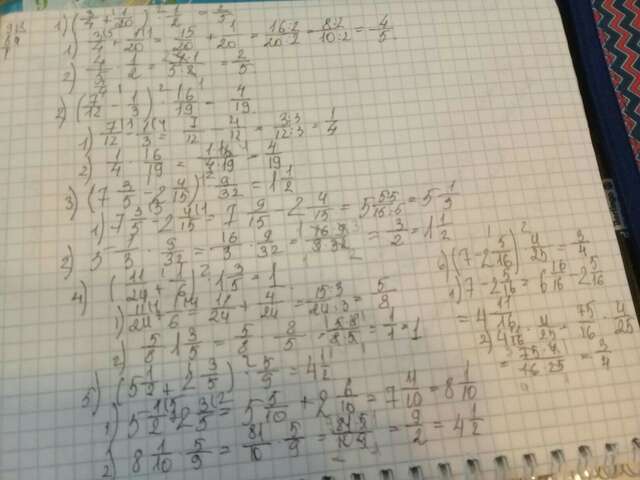 1) (3/4 + 1/20) · 1/2 = 2/5
1) 3/4 + 1/20 = 15/20 + 1/20 = 16:2/20:2 = 8:2/10:2 = 4/5
2) 4/5 · 1/2 = 4·1/5·2 = 2/5
2) (7/12 - 1/3) · 16/19 = 4/19
1) 7/12 - 1/3 = 7/12 - 4/12 = 3:3/12:3 = 1/4
2) 1/4 · 16/19 = 1·16/4·19 = 4/19
3) (7 3/5 - 2 4/15) · 9/32 = 1 1/2
1) 7 3/5 - 2 4/15 = 7 9/15 - 2 4/15 = 5 5:5/15:5 = 5 1/3
2) 5 1/3 · 9/32 = 16/3 · 9/32 = 16·9/3·32 = 3/2 = 1 1/2
4) (11/24 + 1/6) · 1 3/5 = 1
1) 11/24 + 1/6 = 11/24 + 4/24 = 15:3/24:3 = 5/8
2) 5/8 · 1 3/5 = 5/8 · 8/5 = 5·8/8·5 = 1/1 = 1
5) (5 1/2 + 2 3/5) · 5/9 = 4 1/2
1) 5 1/2 + 2 3/5 = 5 5/10 + 2 6/10 = 7 11/10 = 8 1/10
2) 8 1/10 · 5/9 = 81/10 · 5/9 = 81·5/10·9 = 9/2 = 4 1/2
6) (7 - 2 5/16) · 4/25 = 3/4
1) 7 - 2 5/16 = 6 16/16 - 2 5/16
= 4 11/16
2) 4 11/16 · 4/25 = 75/16 · 4/25
= 75·4/16·25 = 3/4